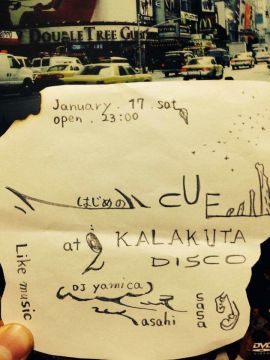 DOUBLETREE GUEST
January . 17 sat
open . 23:00
はじめの CUE
at KALAKUTA
DISCO
Like music
(DJ yamica)
asahi
sasa
DVD